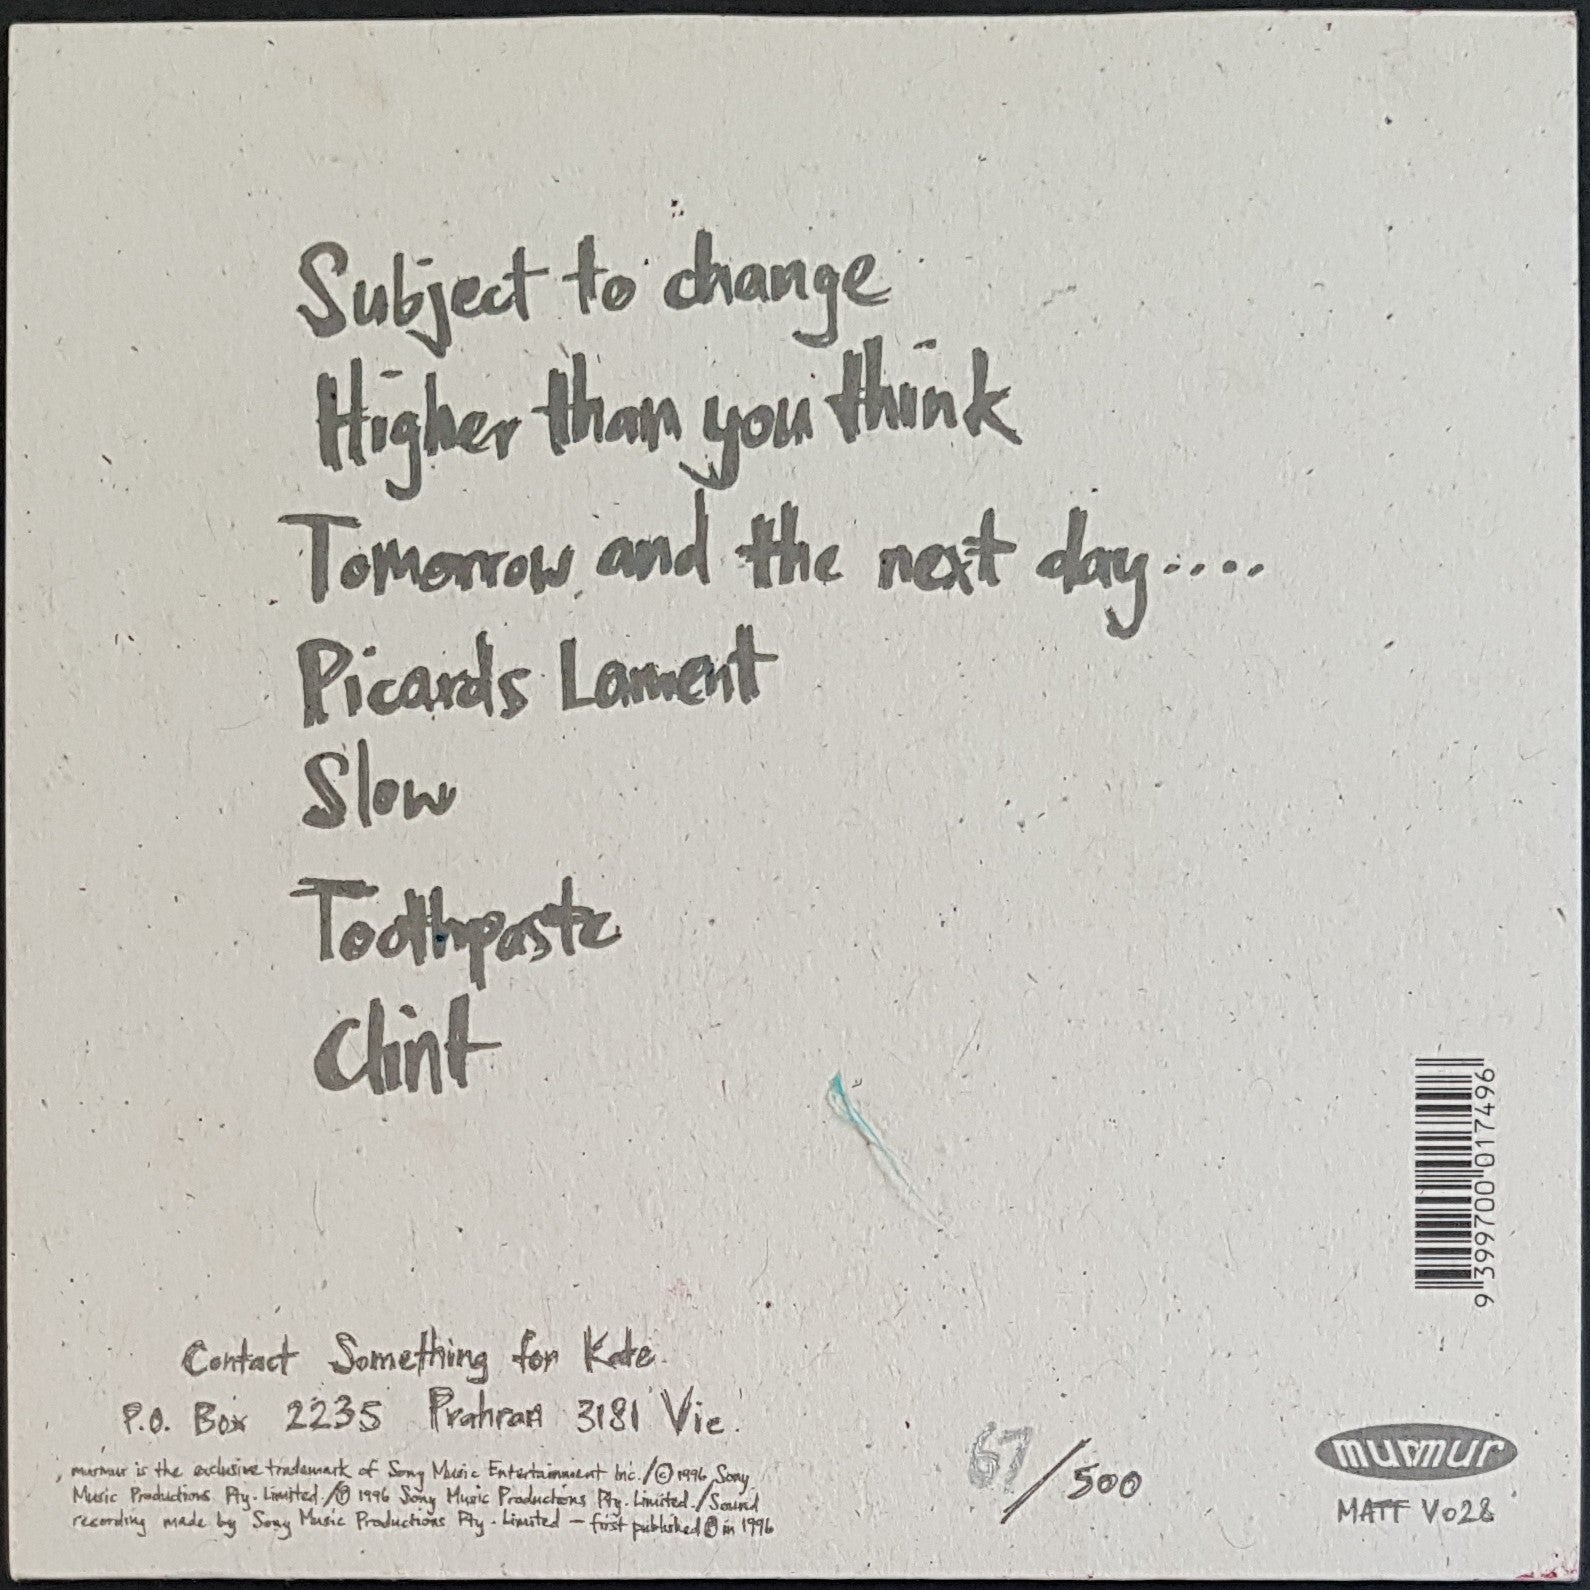 Subject to change
Higher than you think
Tomorrow and the next day....
Picards Lament
Slow
Toothpaste
Clint
9 399700 017496
Contact Something for Kate.
P.O. Box 2235 Prahran 3181 Vic.
murmur is the exclusive trademark of Sony Music Entertainment Inc./© 1996 Sony
Music Productions Pty. Limited./℗ 1996 Sony Music Productions Pty. Limited./Sound
recording made by Sony Music Productions Pty. Limited – first published ℗ in 1996
67/500
murmur
MATT V028